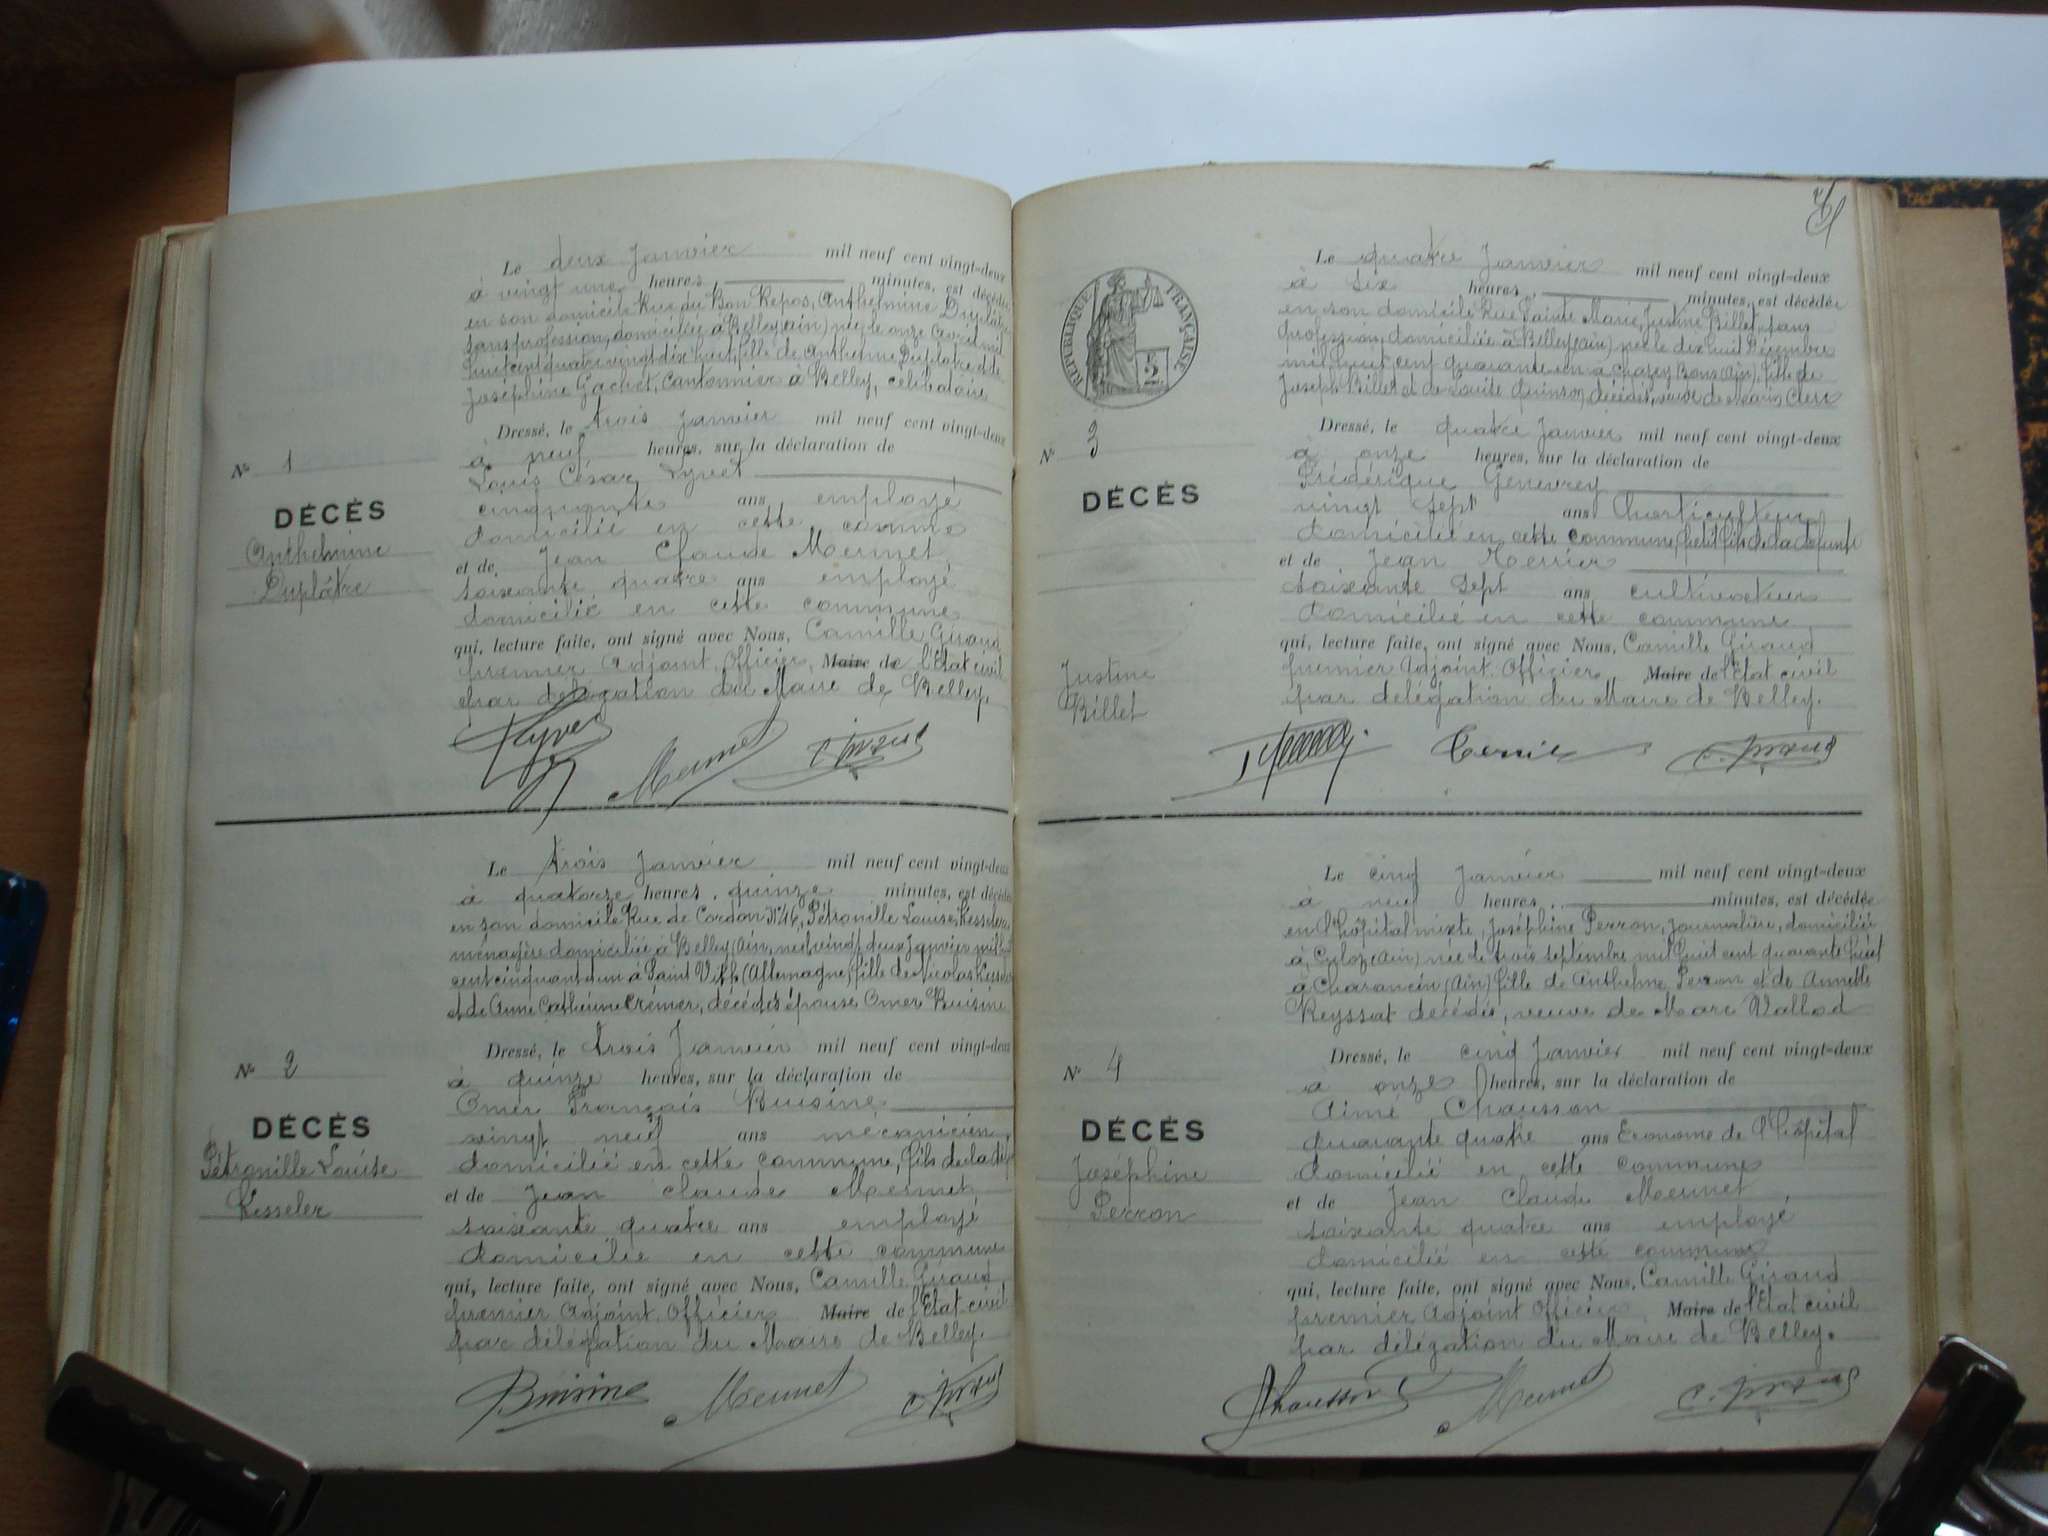 Le deux Janvier mil neuf cent vingt-deux
à vingt une heures, minutes, est décédée
en son domicile Rue du Bon Repos, Anthelmine Duplâtre
sans profession, domiciliée à Belley (ain) née le onze Avril mil
huit cent quatre vingt dix huit, fille de Anthelme Duplâtre et de
Joséphine Gachet, Cantonnier à Belley, célibataire
Dressé, le trois Janvier mil neuf cent vingt-deux
à neuf heures, sur la déclaration de
Louis César Lyvet
cinquante ans employé
domicilié en cette comme
N° 1
DÉCÈS
Anthelmine
Duplâtre
et de Jean Claude Mermet
soixante quatre ans employé
domicilié en cette commune
qui, lecture faite, ont signé avec Nous, Camille Giraud
premier Adjoint. Officier Maire de l'Etat civil
par délégation du Maire de Belley.
Lyvet Mermet C. Giraud
Le trois Janvier mil neuf cent vingt-deux
à quatorze heures, quinze minutes, est décédée
en son domicile Rue de Cordon N°46, Pétronille Louise Kesseler
ménagère domiciliée à Belley (Ain, née vingt deux Janvier mil huit
cent cinquante un à Saint (Allemagne) fille de Nicolas Kesseler
et de Anne Catherine Crémer, décédés épouse Omer Buisine
Dressé, le trois Janvier mil neuf cent vingt-deux
à quinze heures, sur la déclaration de
Omer François Buisine
vingt neuf ans mécanicien,
domicilié en cette commune, fils de la
N° 2
DÉCÈS
Pétronille Louise
Kesseler
et de Jean Claude Mermet,
soixante quatre ans employé
domicilié en cette commune
qui, lecture faite, ont signé avec Nous, Camille Giraud
premier Adjoint. Officier Maire de l'Etat civil
par délégation du Maire de Belley.
Buisine Mermet C. Giraud
RÉPUBLIQUE FRANÇAISE
Le quatre Janvier mil neuf cent vingt-deux
à six heures, minutes, est décédée
en son domicile Rue Sainte Marie, Justine Billet, sans
profession, domiciliée à Belley (ain) née le dix huit Décembre
mil huit cent quarante un à Chazey Bons (Ain), fille de
Joseph Billet et de Louise Quinson, décédés, veuve de
Dressé, le quatre Janvier mil neuf cent vingt-deux
à onze heures, sur la déclaration de
Frédérique Genevrey
vingt sept ans horticulteur
domicilié en cette commune, petit fils de la défunte
N° 3
DÉCÈS
Justine
Billet
et de Jean Terrier
soixante sept ans cultivateur
domicilié en cette commune
qui, lecture faite, ont signé avec Nous, Camille Giraud
premier Adjoint. Officier Maire de l'Etat civil
par délégation du Maire de Belley.
C. Giraud
Le cinq Janvier mil neuf cent vingt-deux
à neuf heures, minutes, est décédée
en l'hôpital mixte, Joséphine Perron, journalière, domiciliée
à Culoz (Ain) née le trois septembre mil huit cent quarante huit
à Charancin (Ain) fille de Anthelme Perron et de Annette
Reyssat décédés, veuve de Marc Vallod
Dressé, le cinq Janvier mil neuf cent vingt-deux
à onze heures, sur la déclaration de
Aimé Chausson
quarante quatre ans Econome de l'Hôpital
domicilié en cette commune
N° 4
DÉCÈS
Joséphine
Perron
et de Jean Claude Mermet
soixante quatre ans employé,
domicilié en cette commune
qui, lecture faite, ont signé avec Nous, Camille Giraud
premier Adjoint Officier Maire de l'Etat civil
par délégation du Maire de Belley.
Chausson Mermet C. Giraud